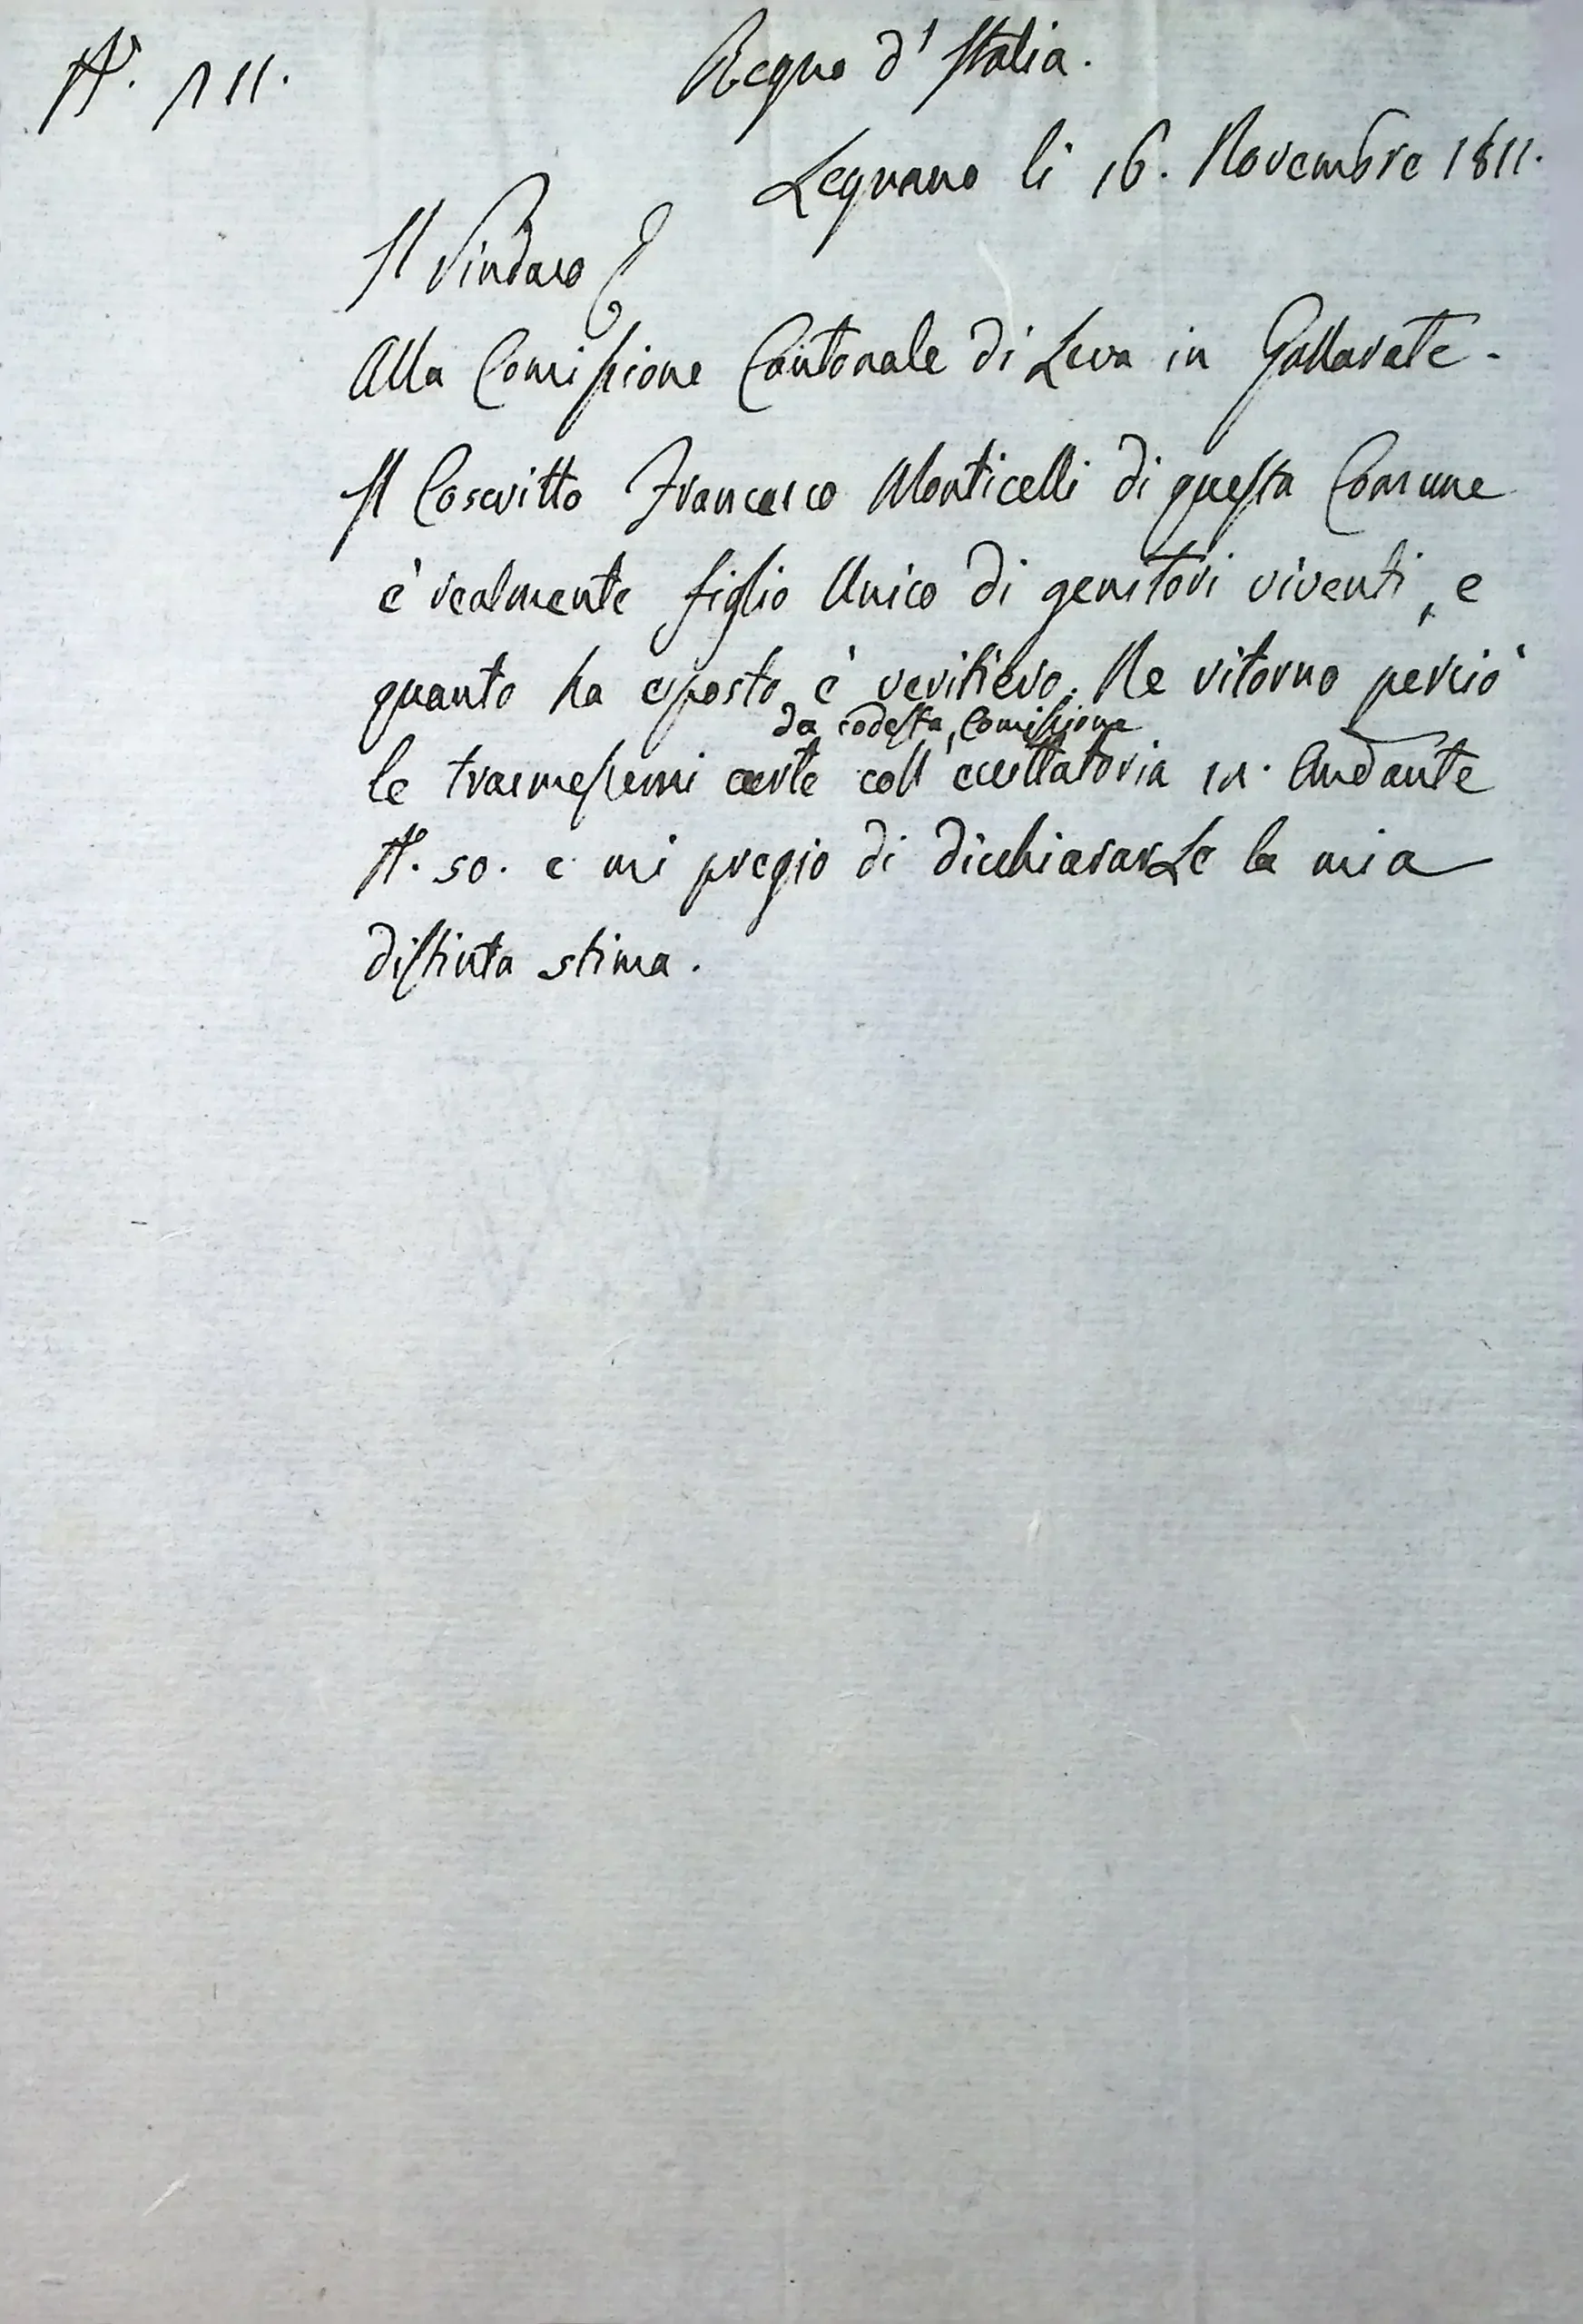 N. 111.
Regno d'Italia.
Legnano li 16. Novembre 1811.
Il Sindaco
Alla Comissione Cantonale di Leva in Gallarate.
Il Coscritto Francesco Monticelli di questa Comune
è realmente figlio Unico di genitori viventi, e
quanto ha esposto è veritiero. Ne ritorno perciò
da codesta Comissione
le trasmessemi carte coll' eccittatoria 12. Andante
N. 50. e mi pregio di dicchiararLe la mia
distinta stima.